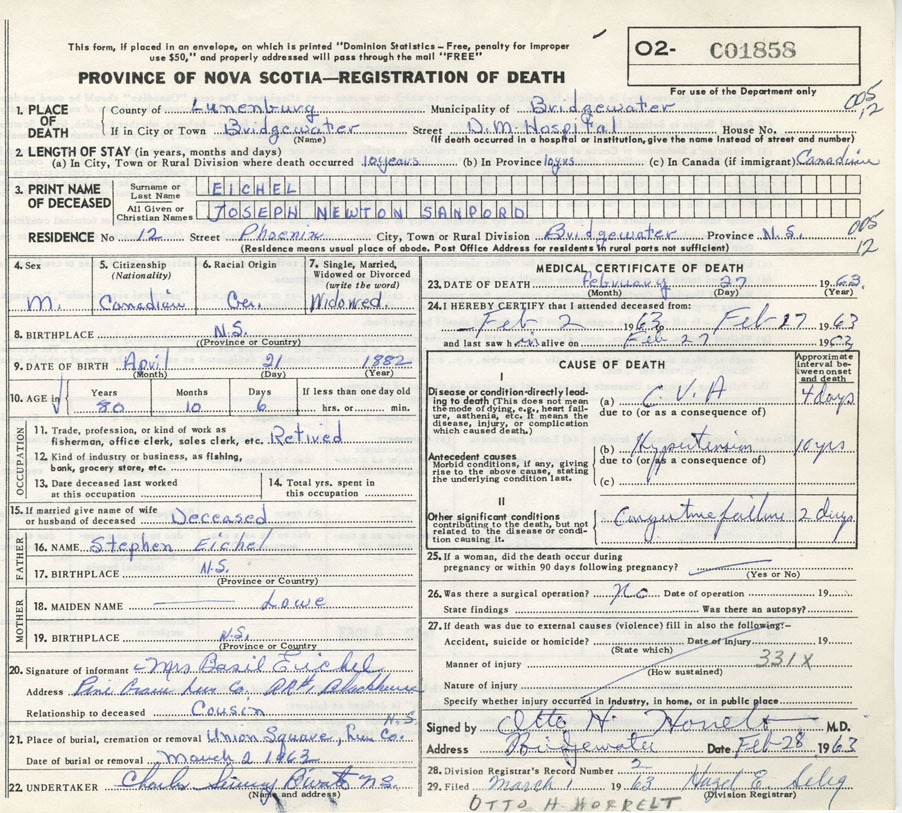 This form, if placed in an envelope, on which is printed "Dominion Statistics – Free, penalty for improper
use $50," and properly addressed will pass through the mail "FREE"
O2- C01858
PROVINCE OF NOVA SCOTIA—REGISTRATION OF DEATH
For use of the Department only
1. PLACE OF DEATH County of Lunenburg Municipality of Bridgewater 005 12
If in City or Town Bridgewater Street D.M. Hospital House No.
(Name) (If death occurred in a hospital or institution, give the name instead of street and number)
2. LENGTH OF STAY (in years, months and days)
(a) In City, Town or Rural Division where death occurred 10 years (b) In Province 10 yrs (c) In Canada (if immigrant) Canadian
3. PRINT NAME OF DECEASED
Surname or Last Name EICHEL
All Given or Christian Names JOSEPH NEWTON SANFORD
RESIDENCE No 12 Street Phoenix City, Town or Rural Division Bridgewater Province N.S. 005 12
(Residence means usual place of abode. Post Office Address for residents in rural parts not sufficient)
4. Sex M.
5. Citizenship (Nationality) Canadian
6. Racial Origin Ger.
7. Single, Married, Widowed or Divorced (write the word) Widowed.
8. BIRTHPLACE N.S.
(Province or Country)
9. DATE OF BIRTH April 21 1882
(Month) (Day) (Year)
10. AGE in Years 80 Months 10 Days 6 If less than one day old hrs. or min.
OCCUPATION
11. Trade, profession, or kind of work as fisherman, office clerk, sales clerk, etc. Retired
12. Kind of industry or business, as fishing, bank, grocery store, etc.
13. Date deceased last worked at this occupation
14. Total yrs. spent in this occupation
15. If married give name of wife or husband of deceased Deceased
FATHER
16. NAME Stephen Eichel
17. BIRTHPLACE N.S.
(Province or Country)
MOTHER
18. MAIDEN NAME Lowe
19. BIRTHPLACE N.S.
(Province or Country)
20. Signature of informant Mrs Basil Eichel
Address Pine Grove Lun Co.
Relationship to deceased Cousin N.S.
21. Place of burial, cremation or removal Union Square, Lun Co.
Date of burial or removal March 2 1963
22. UNDERTAKER N.S.
(Name and address)
MEDICAL CERTIFICATE OF DEATH
23. DATE OF DEATH February 27 1963.
(Month) (Day) (Year)
24. I HEREBY CERTIFY that I attended deceased from:
Feb 2 1963 to Feb 27 1963
and last saw him alive on Feb 27 1963
CAUSE OF DEATH
Approximate interval between onset and death
I
Disease or condition directly leading to death (This does not mean the mode of dying, e.g., heart failure, asthenia, etc. It means the disease, injury, or complication which caused death.)
(a) C.V.A 4 days
due to (or as a consequence of)
Antecedent causes
Morbid conditions, if any, giving rise to the above cause, stating the underlying condition last.
(b) Hypertension 10 yrs
due to (or as a consequence of)
(c)
II
Other significant conditions contributing to the death, but not related to the disease or condition causing it.
Congestive failure 2 days
25. If a woman, did the death occur during pregnancy or within 90 days following pregnancy?
(Yes or No)
26. Was there a surgical operation? No Date of operation 19
State findings Was there an autopsy?
27. If death was due to external causes (violence) fill in also the following:–
Accident, suicide or homicide? Date of injury 19
(State which)
Manner of injury 331X
(How sustained)
Nature of injury
Specify whether injury occurred in Industry, in home, or in public place
Signed by Otto H. Horrelt M.D.
Address Bridgewater Date Feb 28 1963
28. Division Registrar's Record Number 2
29. Filed March 1 1963 Hazel E. Selig
(Division Registrar)
OTTO H HORRELT